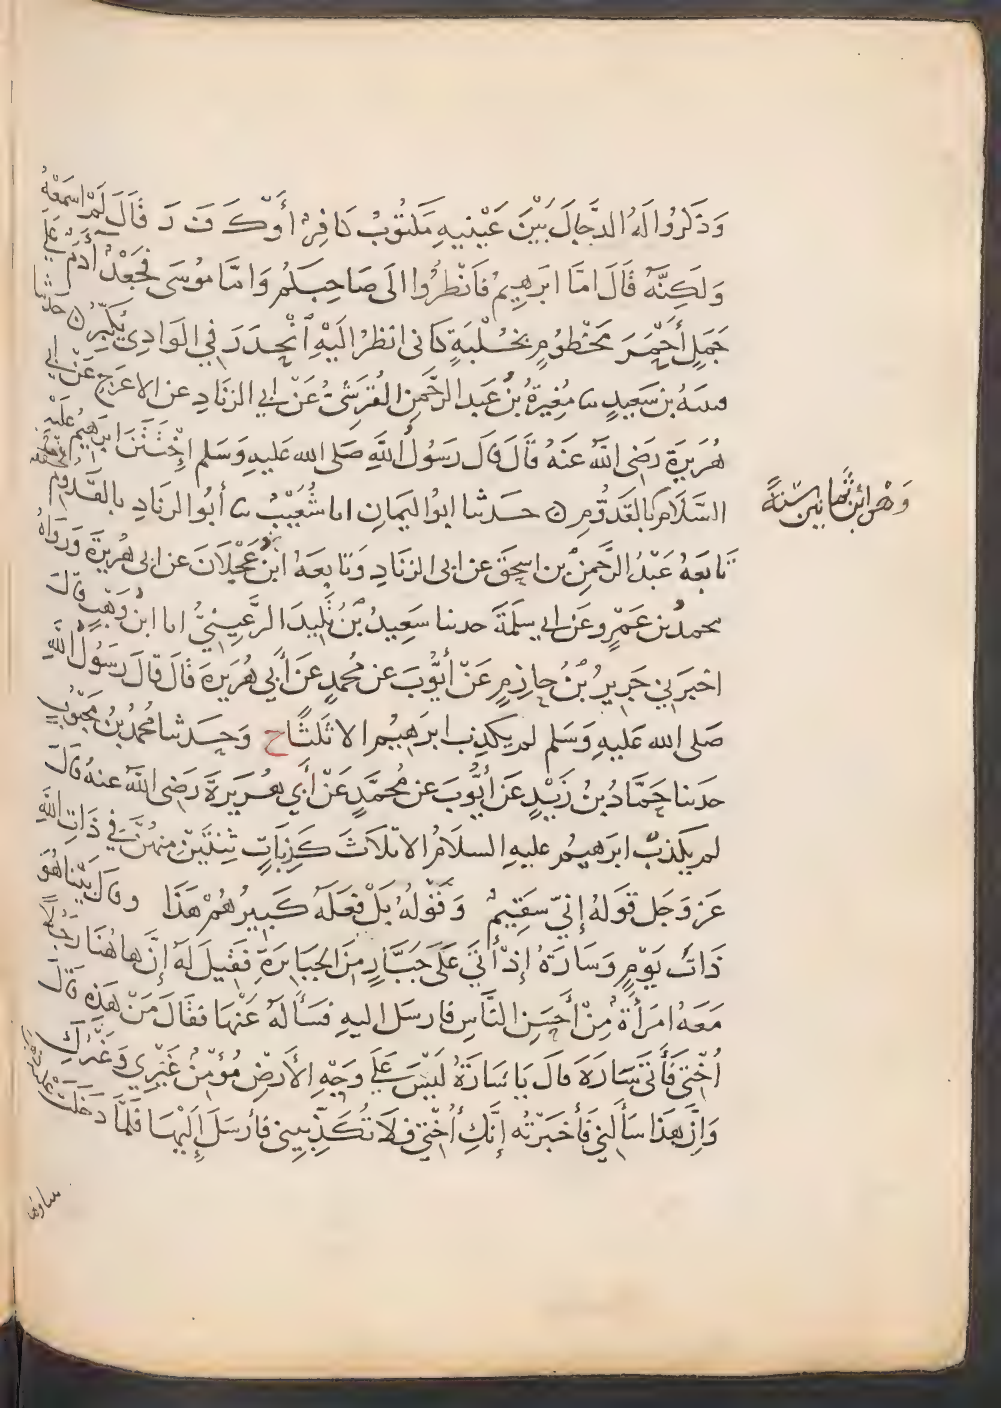 وَذَكَرُوا لَهُ الدَّجَّالَ بَيْنَ عَيْنَيهِ مَكتُوبٌ كَافِرٌ أَوْ ك ف ر قَالَ لَمْ اسمَعْهُ
وَلَكِنَّهُ قَالَ امَّا ابرَهِيمُ فَانْظُرُوا الَى صَاحِبكُم وَامَّا مُوسَى فجَعْدٌ أدَمُ عَلَى
جَمَلٍ أَحْمَرَ مَخْطُومٍ بخُلْبَةٍ كَانى انظُرُ الَيْهِ انْحَدَرَ فِي الوَادِي يُكَبِّرُ ۞ حَدثنا
قتيبَهُ بن سَعِيدٍ نا مُغِيرَةُ بنُ عَبد الرَّحمنِ القُرَشيُّ عَنْ ابي الزنَادِ عن الاعرَجِ عَنْ ابي
هُرَيرَةَ رَضِى اللهُ عَنهُ قَالَ قَالَ رَسُولُ اللَّهِ صَلى الله عَليهِ وَسَلم اخْتَتَنَ ابرَهِيمُ عَلَيْهِ
السَّلَامُ بالقَدُّومِ ۞ حَدثنا ابُو اليَمَانِ انا شُعَيْبٌ نا أبُو الزنَادِ بالقَدُومِ
وَهْوَ ابْنُ ثَمانِينَ سَنَةً
تَابَعَهُ عَبْدُ الرَّحمنِ بن اسحقَ عن ابى الزنَادِ وَتَابَعَهُ ابنُ عَجْلَانَ عن ابى هُرَيرَةَ وَرَوَاهُ
محمدُ بن عَمْرٍو عَن ابي سلَمَةَ حدثنا سَعِيدُ بنُ تَلِيدَ الرُّعَيْنِيُّ انا ابنُ وَهْبٍ قالَ
اخبرَنِي جَرِيرُ بْنُ حازِمٍ عَنْ أيُّوبَ عَن مُحمدٍ عَنَ أبي هُرَيرَةَ قَالَ قَالَ رَسُولُ اللَّهِ
صَلى الله عَليهِ وَسَلم لم يكذِب ابرَهِيمُ الا ثَلَثًا ح وَحَدثنا مُحمدُ بنُ مَحبُوبٍ
حَدثنا حَمَّادُ بنُ زَيْدٍ عَنْ أيُّوبَ عن مُحمَّدٍ عَنْ أبي هُرَيرَةَ رَضِى اللهُ عنهُ قالَ
لم يكذبْ ابرَهِيمُ عليهِ السلَامُ الا ثلَاثَ كَذِبَاتٍ ثِنْتَيْنِ منهُنَّ في ذَاتِ اللَّهِ
عَز وَجَل قوله إِنِّي سَقِيمٌ وَقَوْلهُ بَلْ فَعَلَهُ كَبِيرُهُمْ هَذَا وقَالَ بَيْنا هُوَ
ذَاتَ يَوْمٍ وَسَارَةُ إذْ أَتَى عَلَى جَبَّارٍ مِنَ الجبَابِرَةِ فَقِيلَ لهُ إنَّ هَاهُنَا رَجُلًا
مَعَهُ امرَأةٌ مِنْ أَحسَنِ النَّاسِ فارسَلَ اليهِ فسَألَهُ عَنْهَا فقَالَ مَنْ هَذِهِ قَالَ
أُخْتِي فَأَتَى سَارَةَ قالَ يَا سَارَةُ لَيْسَ عَلَى وَجْهِ الأَرْضِ مُؤمِنٌ غَيْرِي وَغَيْرُكِ
وَانَّ هَذَا سَألَنِي فَأَخبَرْتُه إنَّكِ أُخْتِي فَلَا تُكَذِّبِينِي فأرسَلَ إِلَيْهَا فَلَمَّا دَخَلَت